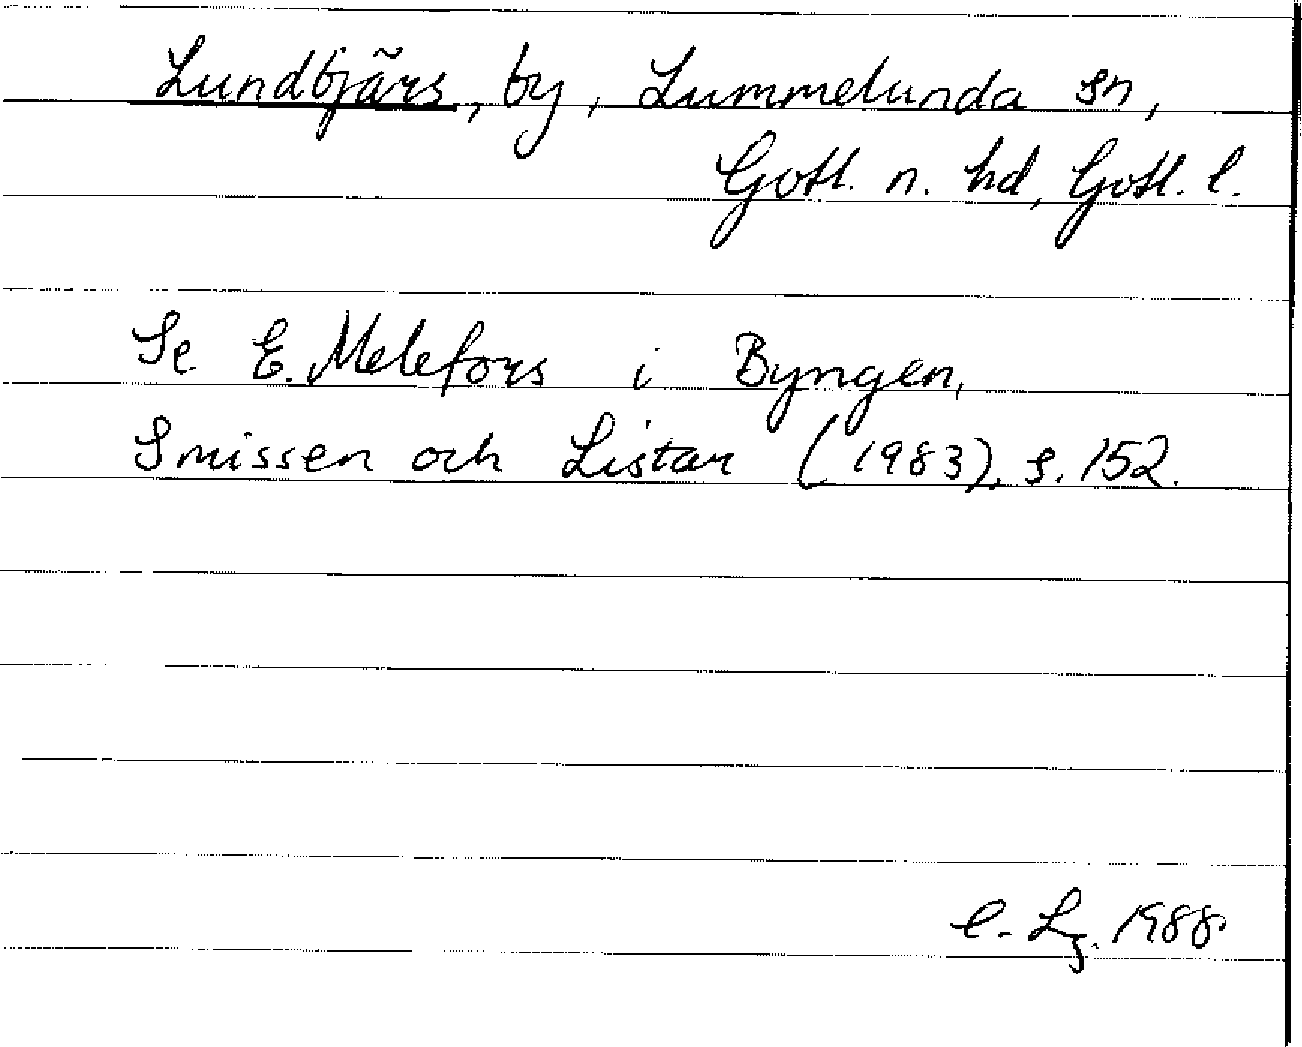 Lundbjärs, by, Lummelunda sn,
Gotl. n. hd, Gotl. l.
Se E. Melefors i Byngen,
Smissen och Listar (1983), s. 152.
1988